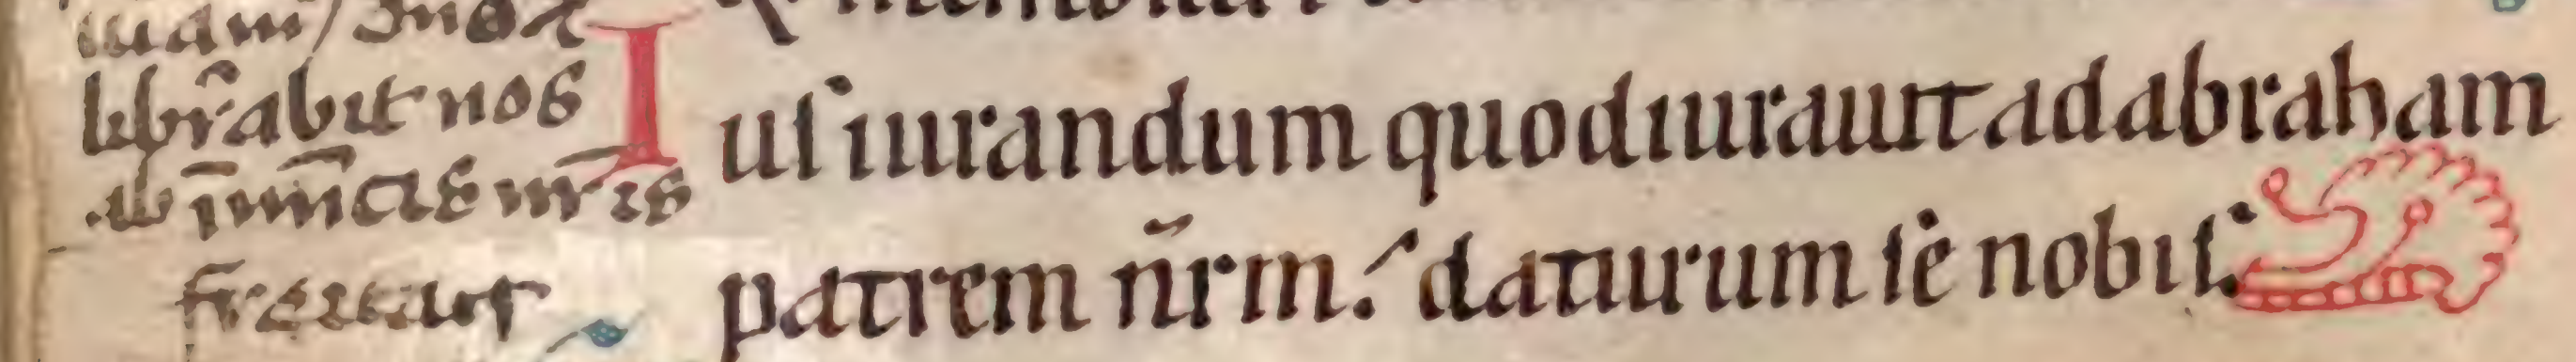 librabit nos
ab inimicis nr̅is
Iusiurandum quod iurauit ad abraham
patrem nr̅m: daturum se nobis.